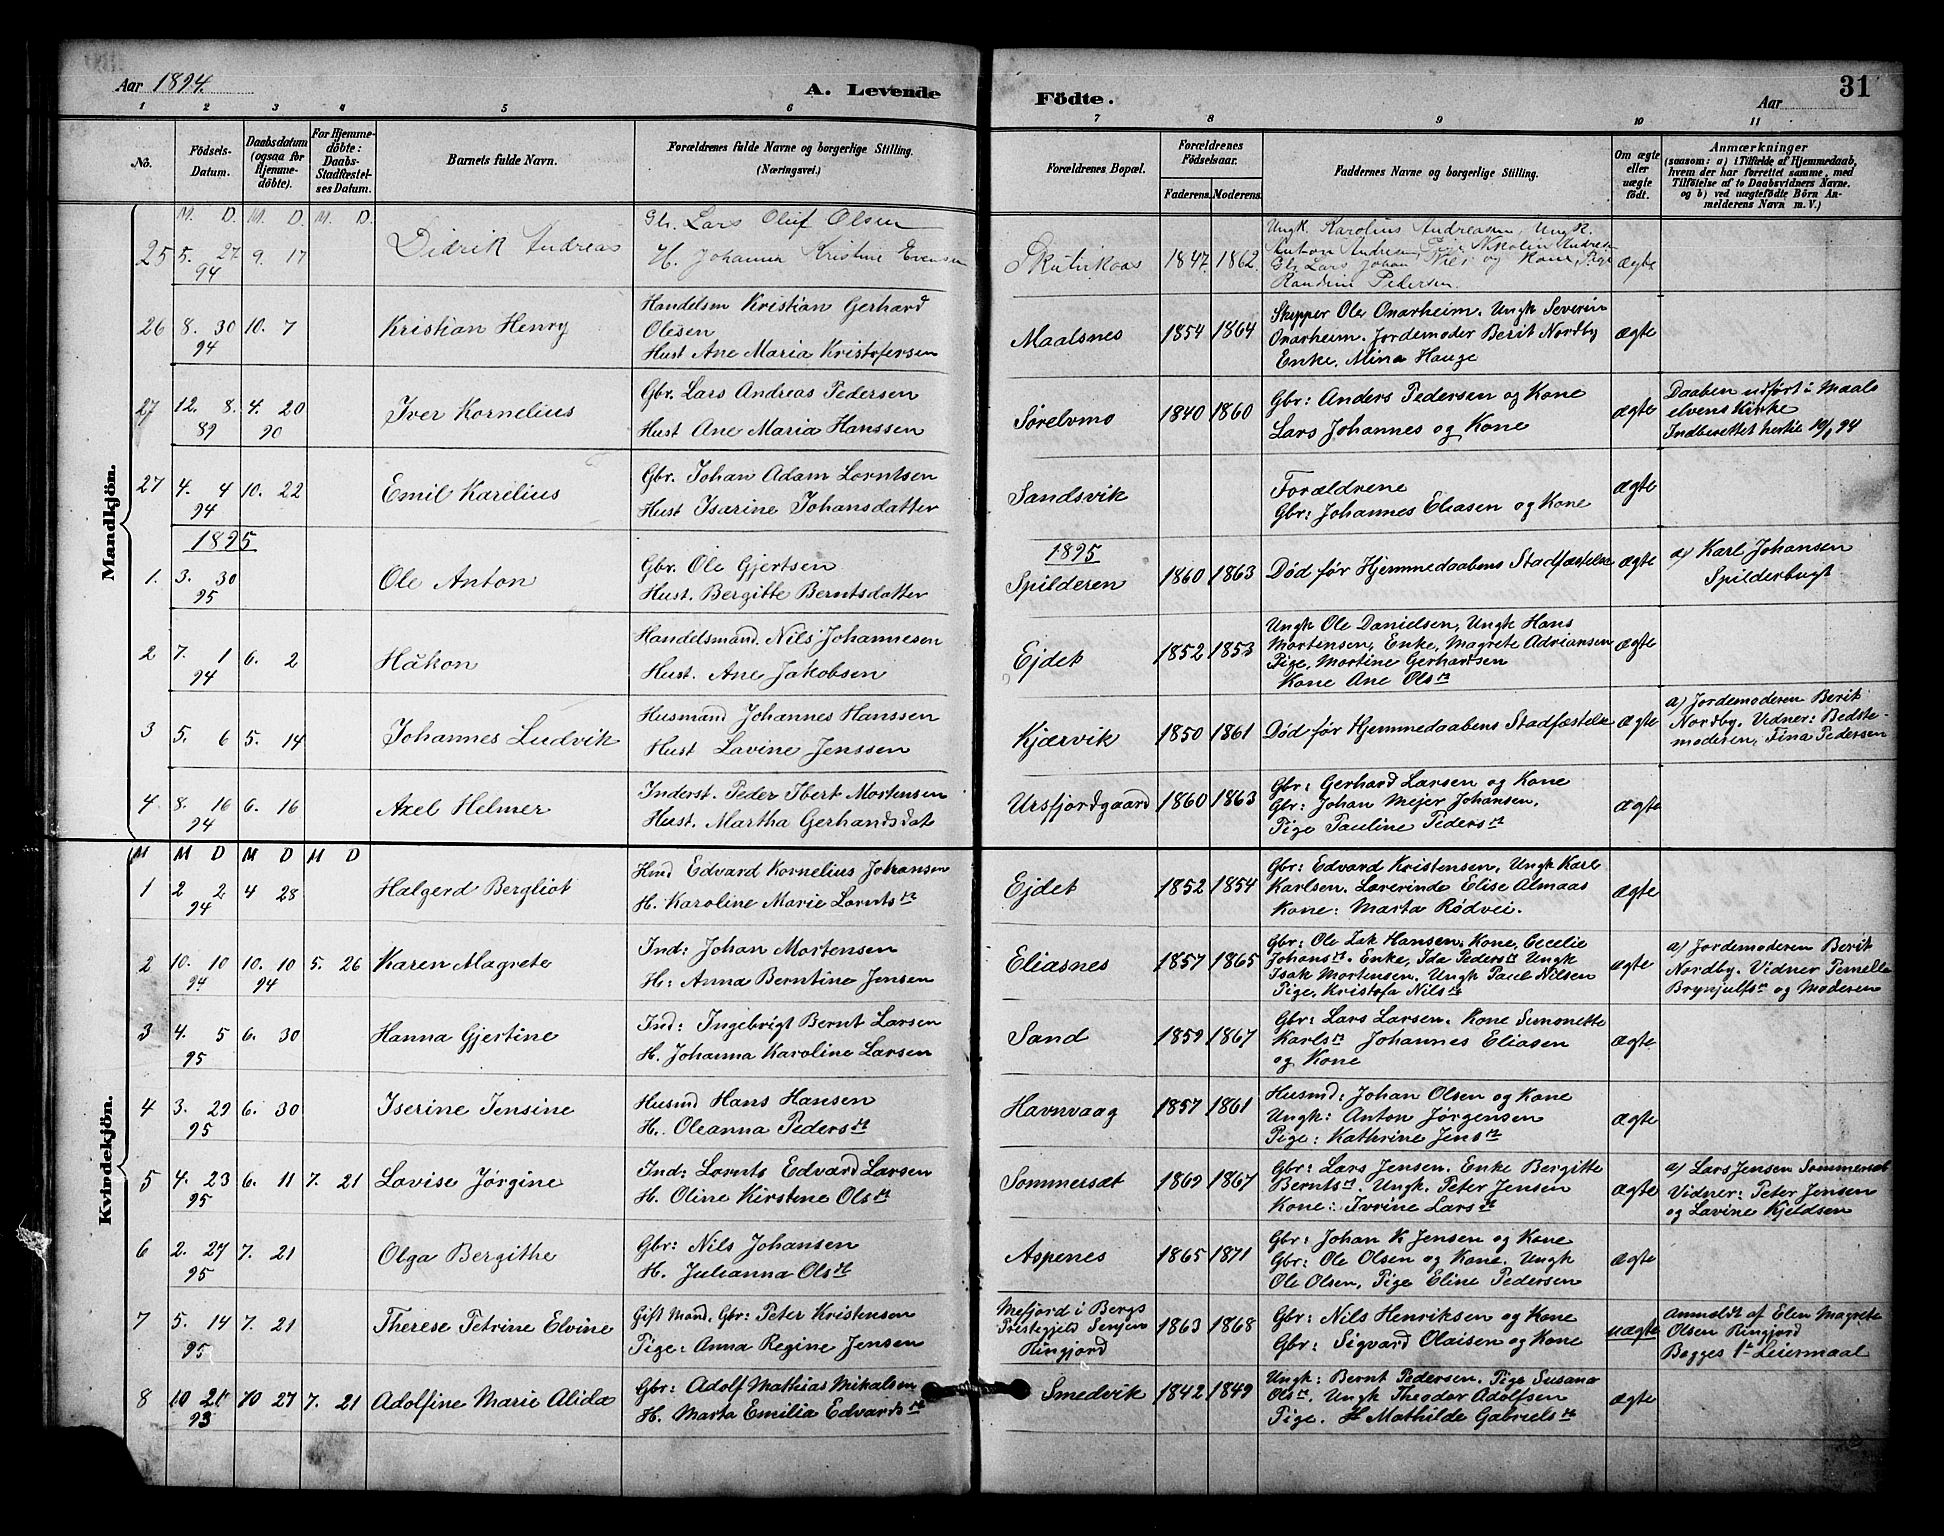 Aar 1894.
A. Levende
Födte.
Aar
31
1 2 3 4 5 6 7 8 9 10 11
No.
Födsels-
Datum.
Daabsdatum
(ogsaa for
Hjemme-
döbte).
For Hjemme-
döbte:
Daabs-
Stadfæstel-
ses Datum.
Barnets fulde Navn.
Forældrenes fulde Navne og borgerlige Stilling.
(Næringsvei.)
Forældrenes Bopæl.
Forældrenes
Födselsaar.
Faderens. Moderens.
Faddernes Navne og borgerlige Stilling.
Om ægte
eller
uægte
födt.
Anmærkninger
(saasom: a) i Tilfælde af Hjemmedaab,
hvem der har forrettet samme, med
Tilföielse af to Daabsvidners Navne.
og b) ved uægtefödte Börn An-
melderens Navn m. V.)
Mandkjön.
M. D. M. D. M. D.
25 5. 27 94 9. 17
Didrik Andreas
Gb. Lars Oluf Olsen
H. Johanna Kristine Evensen
1847. 1862.
Ungk. Karolius Andreasen, Ungk.
Anton Andreas, Pige Nikolin Andreas
Gb. Lars Johan Nils og Kone, Pige
Randine Pedersen.
ægte
26 8. 30 94 10. 7
Kristian Henry
Handelsm Kristian Gerhard
Olesen
Hust Ane Maria Kristofersen
Maalsnes
1854 1864
Skipper Ole Onarheim. Ungk Severin
Onarheim. Jordemoder Berit Nordby
Enke, Mina Hauge
ægte
27 12. 8. 89 4. 20 90
Iver Kornelius
Gbr. Lars Andreas Pedersen
Hust Ane Maria Hanssen
Sørelvmo
1840 1860
Gbr: Anders Pedersen og Kone
Lars Johannes og Kone
ægte
Daaben udført i Maals
elvens Kirke
Indberettet hertil 19/1 94
27 4. 4 94 10. 22
Emil Karelius
Gbr. Johan Adam Lorntsen
Hust Isarine Johansdatter
Sandsvik
Forældrene
Gbr: Johannes Eliasen og Kone
ægte
1895
1. 3. 30 95
Ole Anton
Gbr. Ole Gjertsen
Hust. Bergitte Berntsdatter
1895
Spilderen
1860 1863
Død før Hjemmedaabens Stadfæstelse
ægte
a) Karl Johansen
Spilderbugt
2 7. 1 94 6. 2
Håkon
Handelsmand. Nils Johannesen
Hust. Ane Jakobsen
Ejdet
1852 1853
Ungk Ole Danielsen, Ungk Hans
Mortensen, Enke, Magrete Adriansen
Pige, Mortine Gerhardsen
Kone Ane Olsdt
ægte
3 5. 6 5. 14
Johannes Ludvik
Husmand Johannes Hanssen
Hust Lavine Jenssen
Kjærvik
1850 1861
Død før Hjemmedaabens Stadfæstelse
ægte
a) Jordemoderen Berit
Nordby. Vidner: Bedste-
moderen, Fina Pedersen
4 8. 16 94 6. 16
Axel Helmer
Inderst. Peder Ibert Mortensen
Hust. Martha Gerhardsdat
Ursfjordgaard
1860 1863
Gbr: Gerhard Larsen og Kone
Gbr: Johan Mejer Johansen.
Pige Pauline Pedersdt
ægte
Kvindekjön.
M M D M D M D
1 2 2 94 4 28
Halgerd Bergliot
Hmd Edvard Kornelius Johansen
H. Karoline Marie Lorntsdt
Ejdet
1852 1854
Gbr: Edvard Kristensen, Ungk Karl
Karlsen. Lærerinde Elise Almaas
Kone: Marta Rødvei.
ægte
2 10. 10 94 10. 10 94 5. 26
Karen Magrete
Ind: Johan Mortensen
H: Anna Berntine Jensen
Eliasnes
1857 1865
Gbr: Ole Zak Hansen. Kone, Cecelie
Johansdt. Enke, Ida Pedersdt Ungk
Isak Mortensen. Ungk Paul Nilsen
Pige, Kristofa Nilsdt
ægte
a) Jordemoderen Berit
Nordby. Vidner Pernelle
Brynjulfsn og Moderen
3 4. 5 95 6. 30
Hanna Gjertine
Ind: Ingebrigt Bernt Larsen
H. Johanna Karoline Larsen
Sand
1859 1867
Gbr: Lars Larsen. Kone Simonette
Karlsdt Johannes Eliasen
og Kone
ægte
4 3. 29 95 6. 30
Iserine Jensine
Husmd Hans Hansen
H. Oleanna Pedersdt
Havnvaag
1857 1861
Husmd: Johan Olsen og Kone
Ungk: Anton Jørgensen
Pige: Kathrine Jensdt
ægte
5 4. 23 95 6. 11 7. 21
Lovise Jørgine
Ind: Lornts Edvard Larsen
H. Oline Kirstine Olsdt
Sommersæt
1869 1867
Gbr: Lars Jensen. Enke Bergitte
Berntsdt. Ungk. Peter Jensen
Kone: Ivrine Larsdt
ægte
a) Lars Jensen Sommersæt
Vidner: Peter Jensen
og Lavine Kjeldsen
6 2. 27 95 7. 21
Olga Bergithe
Gbr: Nils Johansen
H. Julianna Olsdt
Aspenes
1865 1871
Gbr: Johan K Jensen og Kone
Gbr: Ole Olsen og Kone. Ungk
Ole Olsen, Pige Eline Pedersen
ægte
7 5. 14 95 7. 21
Therese Petrine Elvine
Gift Mand, Gbr: Peter Kristensen
Pige: Anna Regine Jensen
Mefjord i Bergs
Prestegjeld Senjen
Kingjord
1863 1868
Gbr: Nils Henriksen og Kone
Gbr: Sigvard Olaisen og Kone
uægte
Anmeldt af Elen Magrete
Olsen Kingjord
Begges 1ste Leiermaal
8 10 21 93 10 27 7. 21
Adolfine Marie Alida
Gbr: Adolf Mathias Mikalsen
H. Marta Emilia Edvardsdt
Smedvik
1842 1849
Ungk: Bernt Pedersen. Pige Susana
Olsdt. Ungk Theodor Adolfsen
Pige. H Mathilde Gabrielsdt
ægte